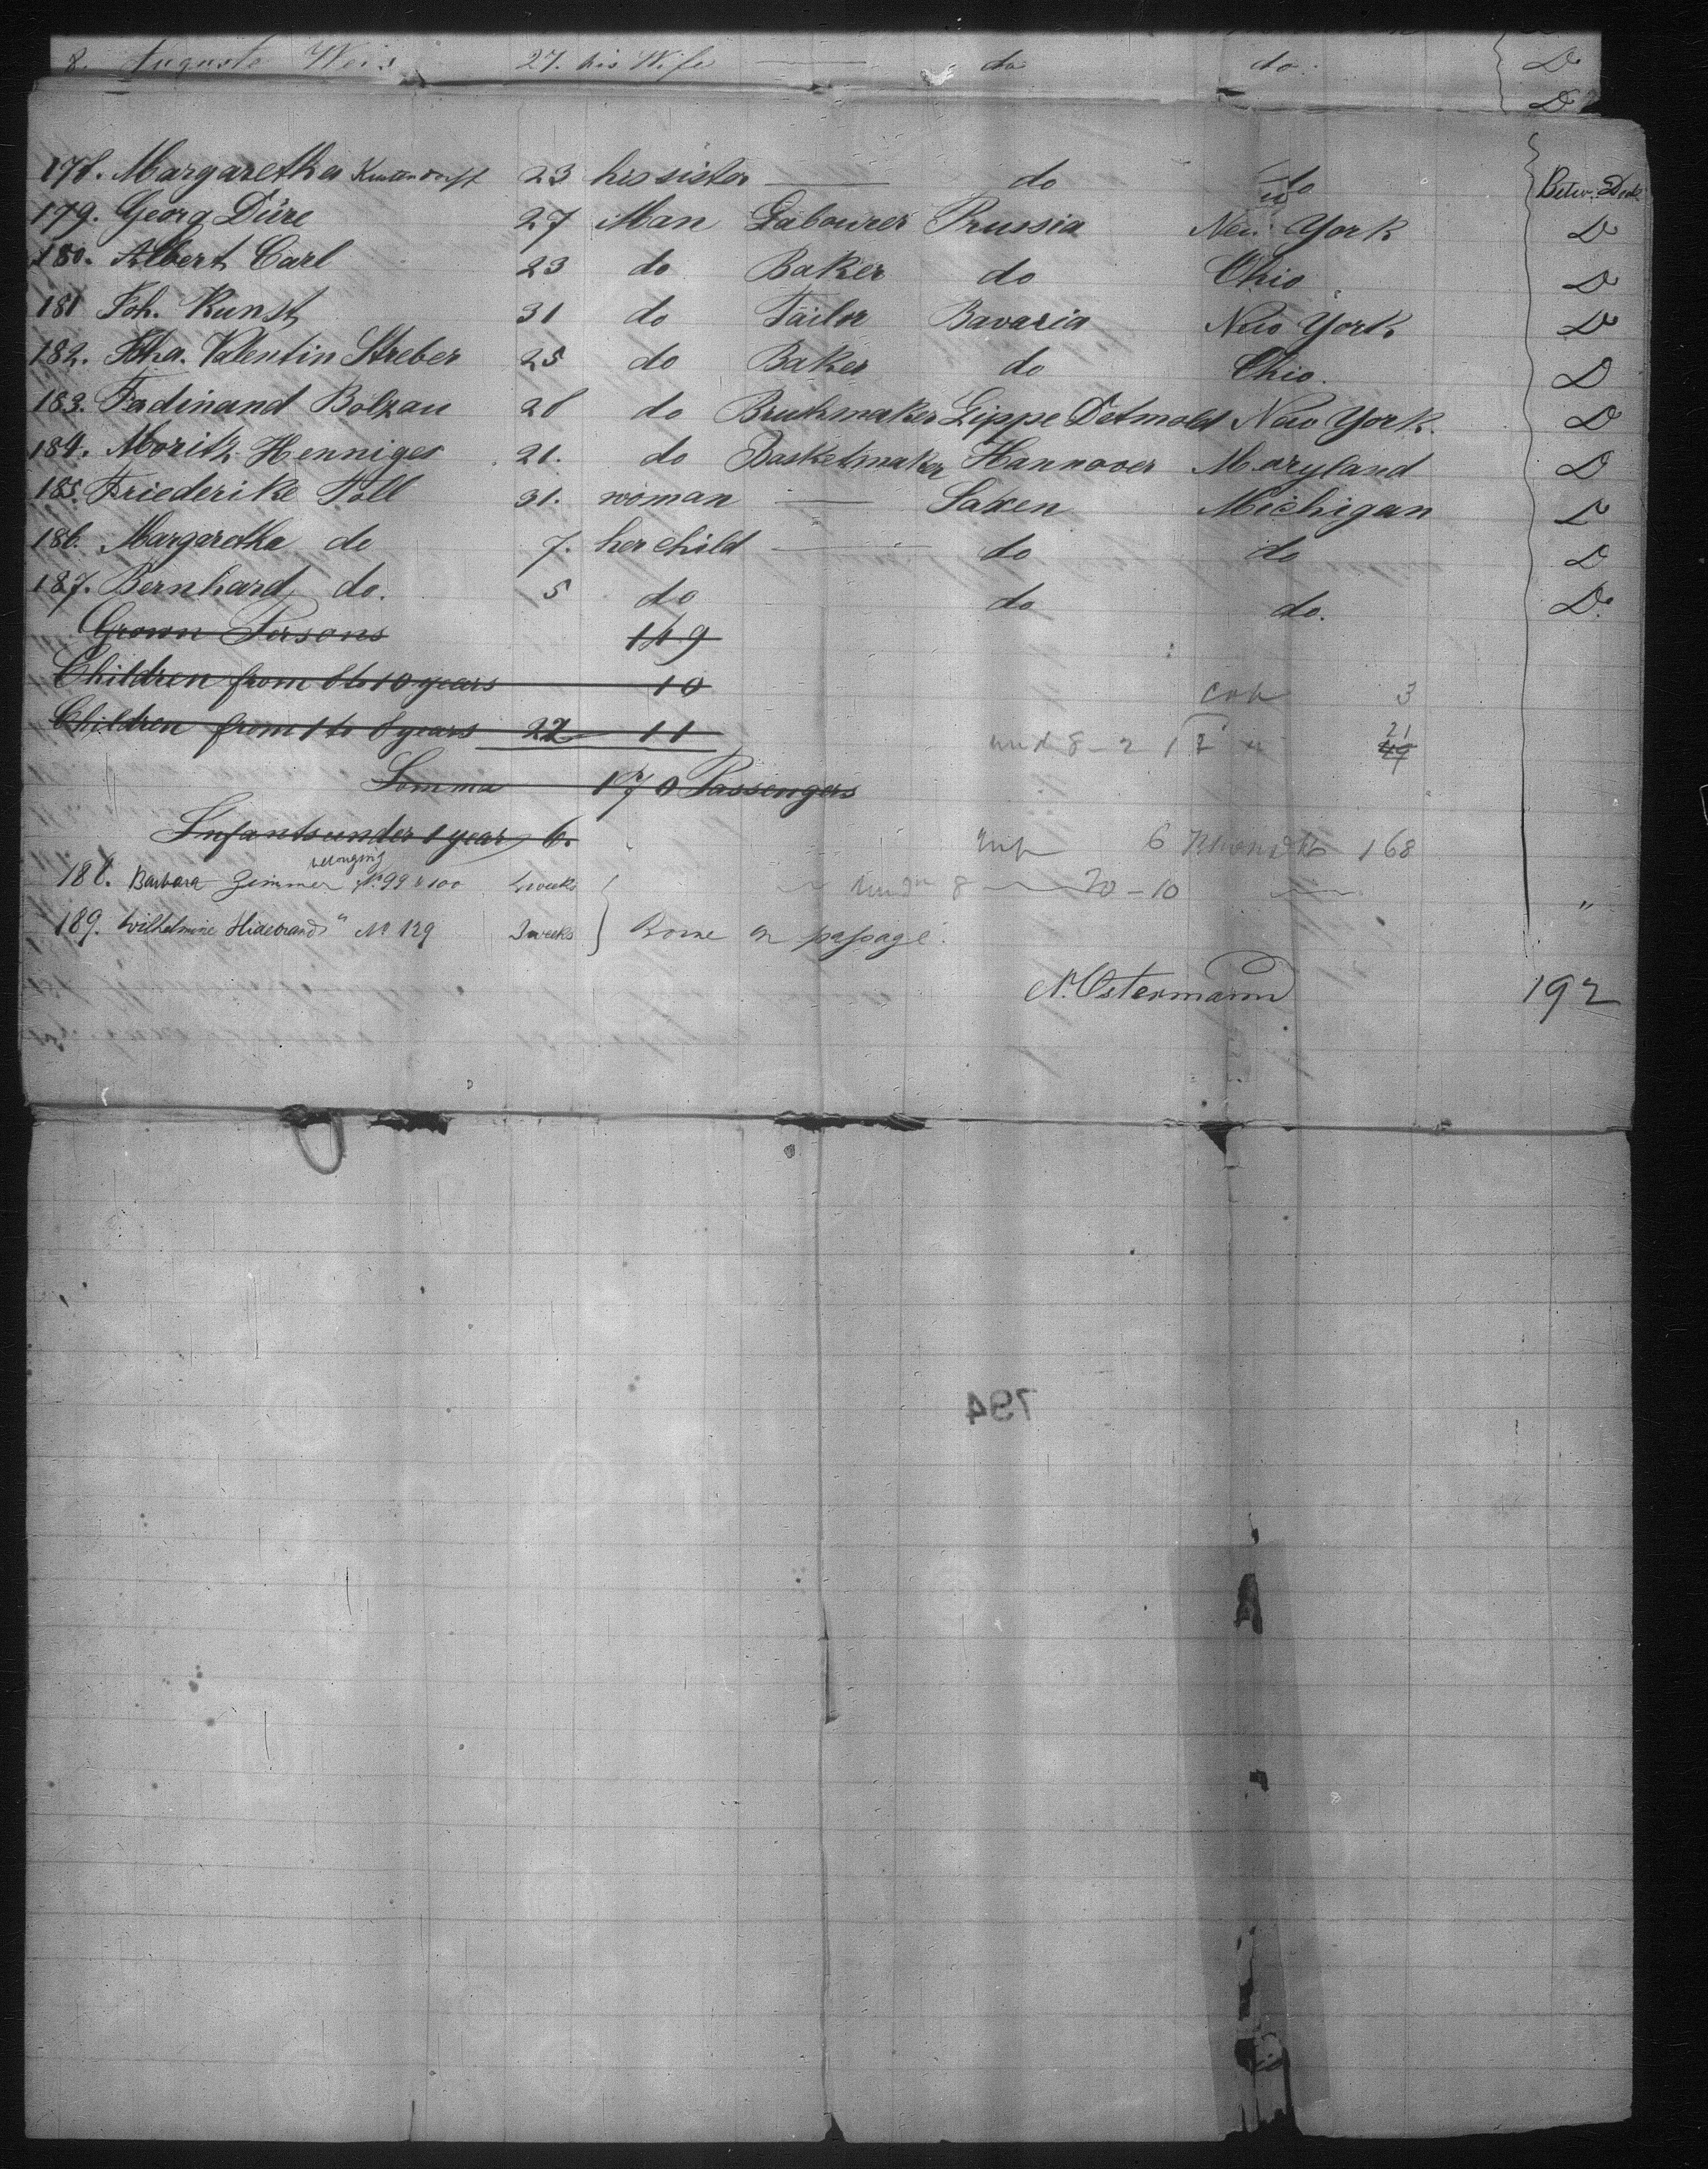 8. Auguste Weis 27. his Wife do do. D
D
178. Margaretha 23 his sister do do Betw. Deck
179. Georg Düre 27 Man Labourer Prussia New York D
180. Albert Carl 23 do Baker do Ohio D
181 Joh. Kunst 31 do Tailor Bavaria New York D
182. Joha. Valentin Streber 25 do Baker do Ohio. D
183. Ferdinand Bölzau 28 do Brushmaker Lippe Detmold New York. D
184. Moritz Henniges 21. do Basketmaker Hannover Maryland D
185. Friederike Töll 31. woman Saxen Michigan D
186. Margaretha do 7. her child do do D
187. Bernhard do. 5 do do do. D.
Grown Persons 149
Children from 8 to 10 years 10
3
Children from 1 to 8 years 22 11
und 8 - 2
21
Somma 170 Passengers
Infants under 1 year 6.
6 168
belonging
188. Barbara Zimmer No 99 & 100 weeks
8 20 - 10 "
189. Wilhelmine Hildebrand " No 129 3 weeks } Borne on passage.
N. Ostermann 192
794